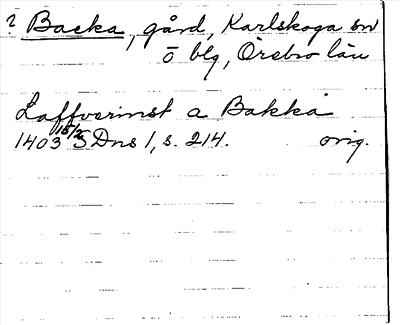 ? Backa, gård, Karlskoga sn
ö blg, Örebro län
Laffverinst a Bakka
1403 15/2 SDns 1, s. 214. orig.